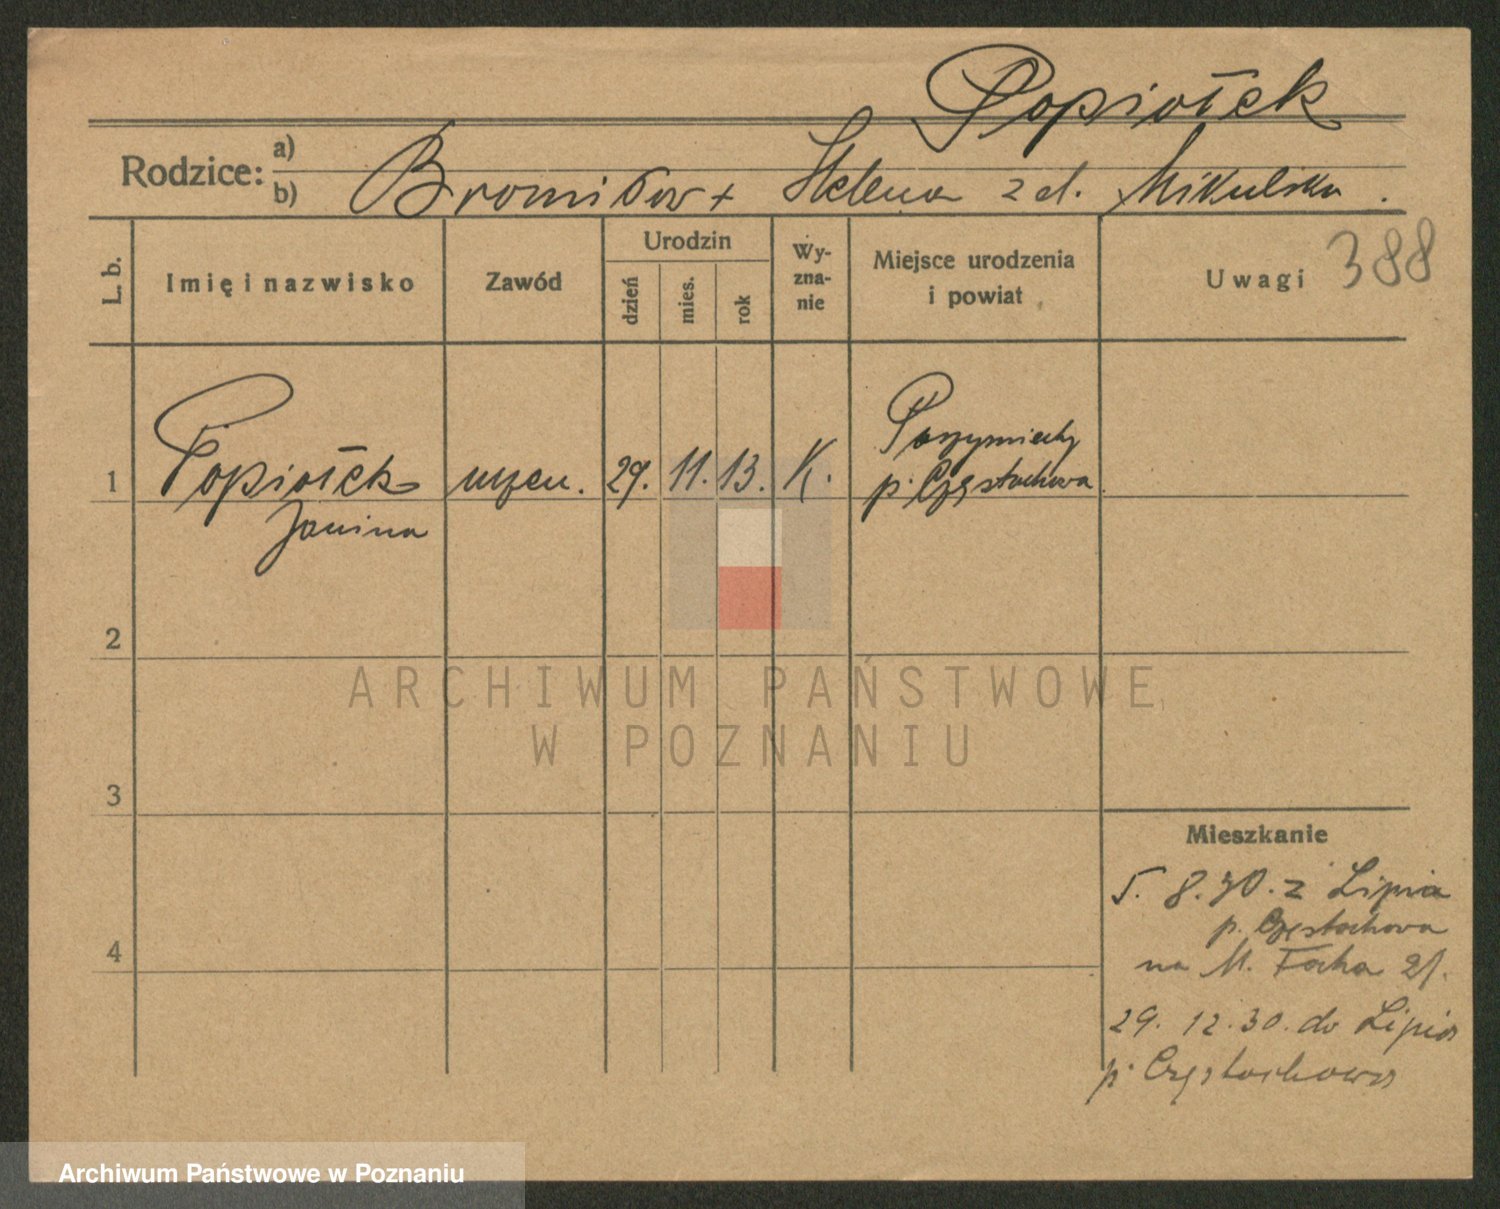 Popiołek
Rodzice: a)
b) Bronisław + Helena z d. Mikulska.
L. b. Imię i nazwisko Zawód Urodzin dzień mies. rok Wy-zna-nie Miejsce urodzenia i powiat Uwagi 388
1 Popiołek uczen. 29. 11. 13. K.
p. Częstochowa
Janina
2
ARCHIWUM PAŃSTWOWE
W POZNANIU
3
Mieszkanie
5. 8. 30. z Lipia
p. Częstochowa
4
na M. Focha
29. 12. 30. do Lipia
p. Częstochowa
Archiwum Państwowe w Poznaniu